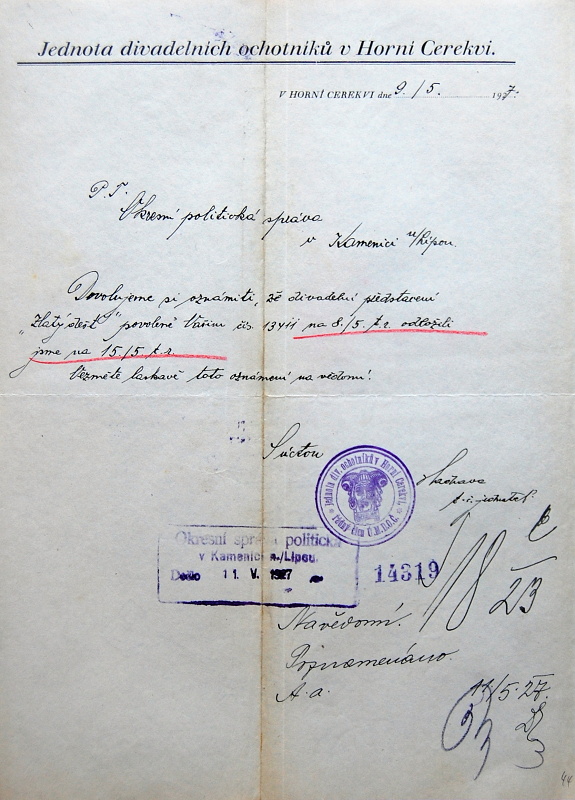 Jednota divadelních ochotníků v Horní Cerekvi.
V HORNÍ CEREKVI dne 9./5. 1927.
P. T.
Okresní politická správa
v Kamenici n/Lipou.
Dovolujeme si oznámiti, že divadelní představení
„Zlatý déšť" povolené Vašim čís. 13411 na 8./5. t.r. odložili
jsme na 15./5. t.r.
Vezměte laskavě toto oznámení na vědomí!
S úctou
Jednota div. ochotníků v Horní Cerekvi.
řádný člen Ú.M.D.O.Č.
t. č. jednatel
Okresní správa politická
v Kamenici n./Lipou.
Došlo 11. V. 1927
14319
18
23
Na vědomí.
Poznamenáno.
A. a.
11/5. 27.
44